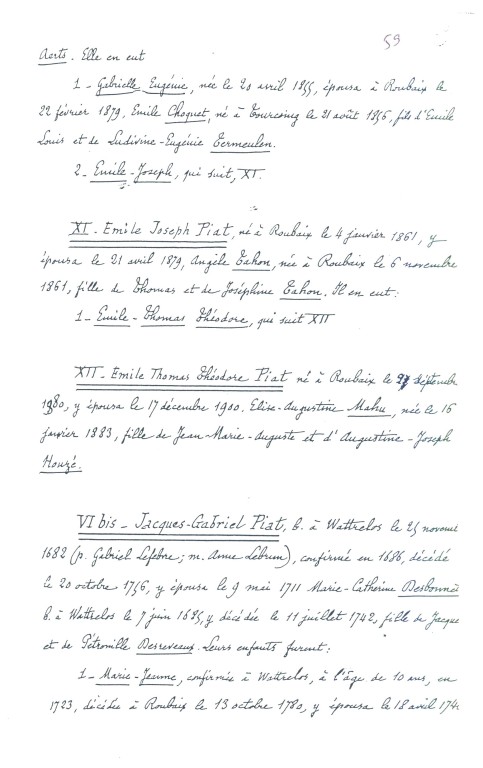 59
Aerts. Elle en eut
1 - Gabrielle Eugénie, née le 20 avril 1855, épousa à Roubaix le
22 février 1879, Emile Choquet, né à Tourcoing le 21 août 1856, fils d'Emile
Louis et de Ludivine-Eugénie Termeulen.
2 - Emile-Joseph, qui suit, XI.
XI - Emile Joseph Piat, né à Roubaix le 4 janvier 1861, y
épousa le 21 avril 1879, Angèle Tahon, née à Roubaix le 6 novembre
1861, fille de Thomas et de Joséphine Tahon. Il en eut:
1 - Emile-Thomas Théodore, qui suit XII
XII - Emile Thomas Théodore Piat né à Roubaix le septembre
, y épousa le 17 décembre 1900. Elise-Augustine Mahu, née le 16
janvier 1883, fille de Jean-Marie-Auguste et d'Augustine-Joseph
Houzé.
VI bis - Jacques-Gabriel Piat, b. à Wattrelos le 25 novem
1682 (p. Gabriel Lefebre; m. Anne Lebrun), confirmé en 1686, décédé
le 20 octobre 1756, y épousa le 9 mai 1711 Marie-Catherine Desbonnet
b. à Wattrelos le 7 juin 1685, y décédée le 11 juillet 1742, fille de Jacque
et de Pétronille Desreveaux. Leurs enfants furent:
1 - Marie-Jeanne, confirmée à Wattrelos, à l'âge de 10 ans, en
1723, décédée à Roubaix le 13 octobre 1780, y épousa le 18 avril 174